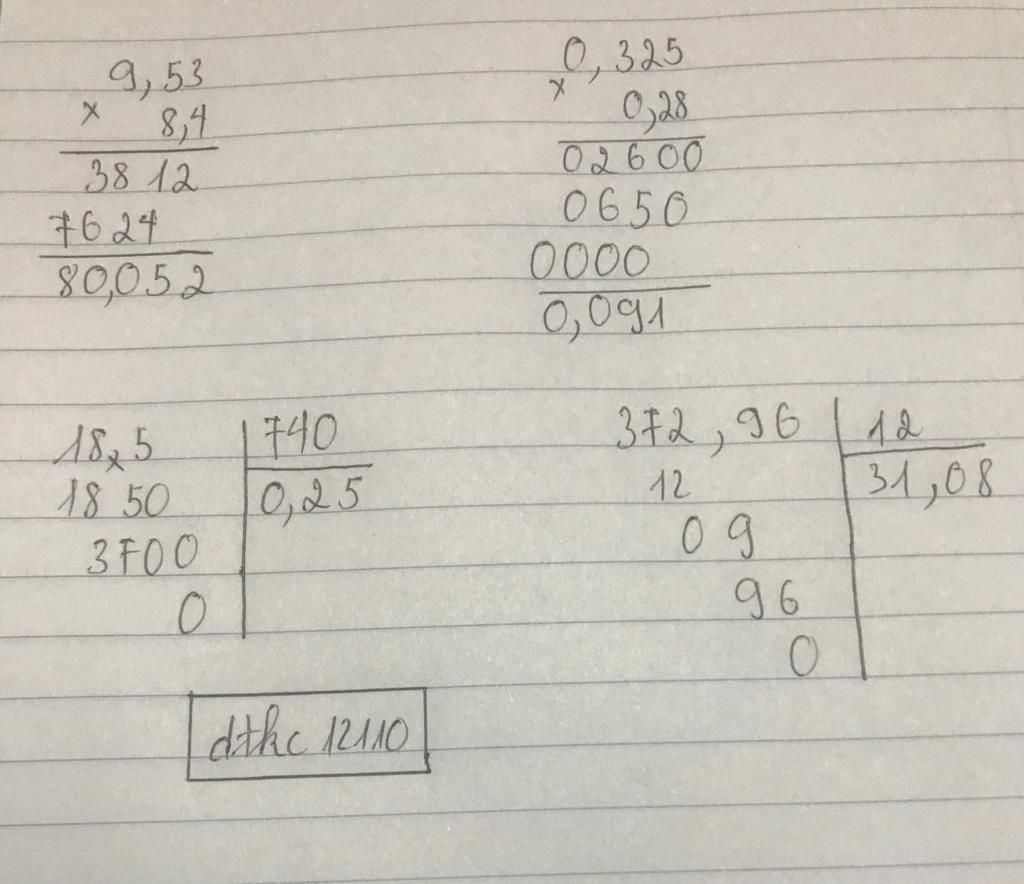 9,53
x 8,4
3812
7624
80,052
0,325
x 0,28
02600
0650
0000
0,091
18,5 740
1850 0,25
3700
0
372,96 12
12 31,08
09
96
0
dthc 12110